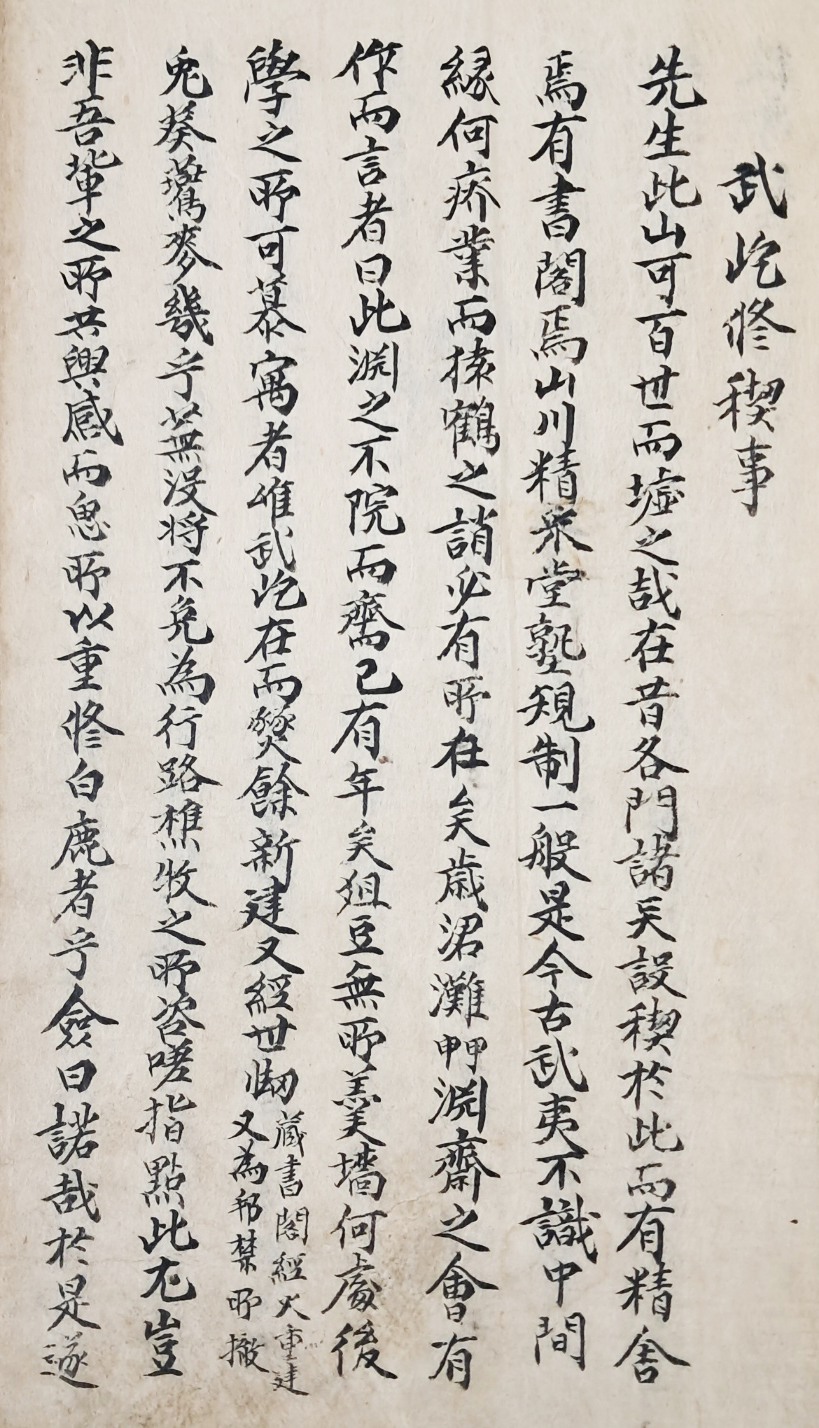 武屹修稧事
先生此山可百世而墟之哉在昔各門諸兵設稧於此而有精舍
焉有書閣焉山川精采堂塾規制一般是今古武夷不識中間
緣何疥業而猿鶴之誚必有所在矣歲涒灘呷淵齋之會有
作而言者曰此淵之不院而齋已有年矣俎豆無所羹墻何處後
學之所可慕寓者唯武屹在而燹餘新建又經世刼
藏書閣經火重建
又為邦禁所撤
兎葵鷰麥幾乎蕪沒將不免為行路樵牧之所咨嗟指點此尤豈
非吾輩之所共興感而思所以重修白鹿者乎僉曰諾哉於是遂